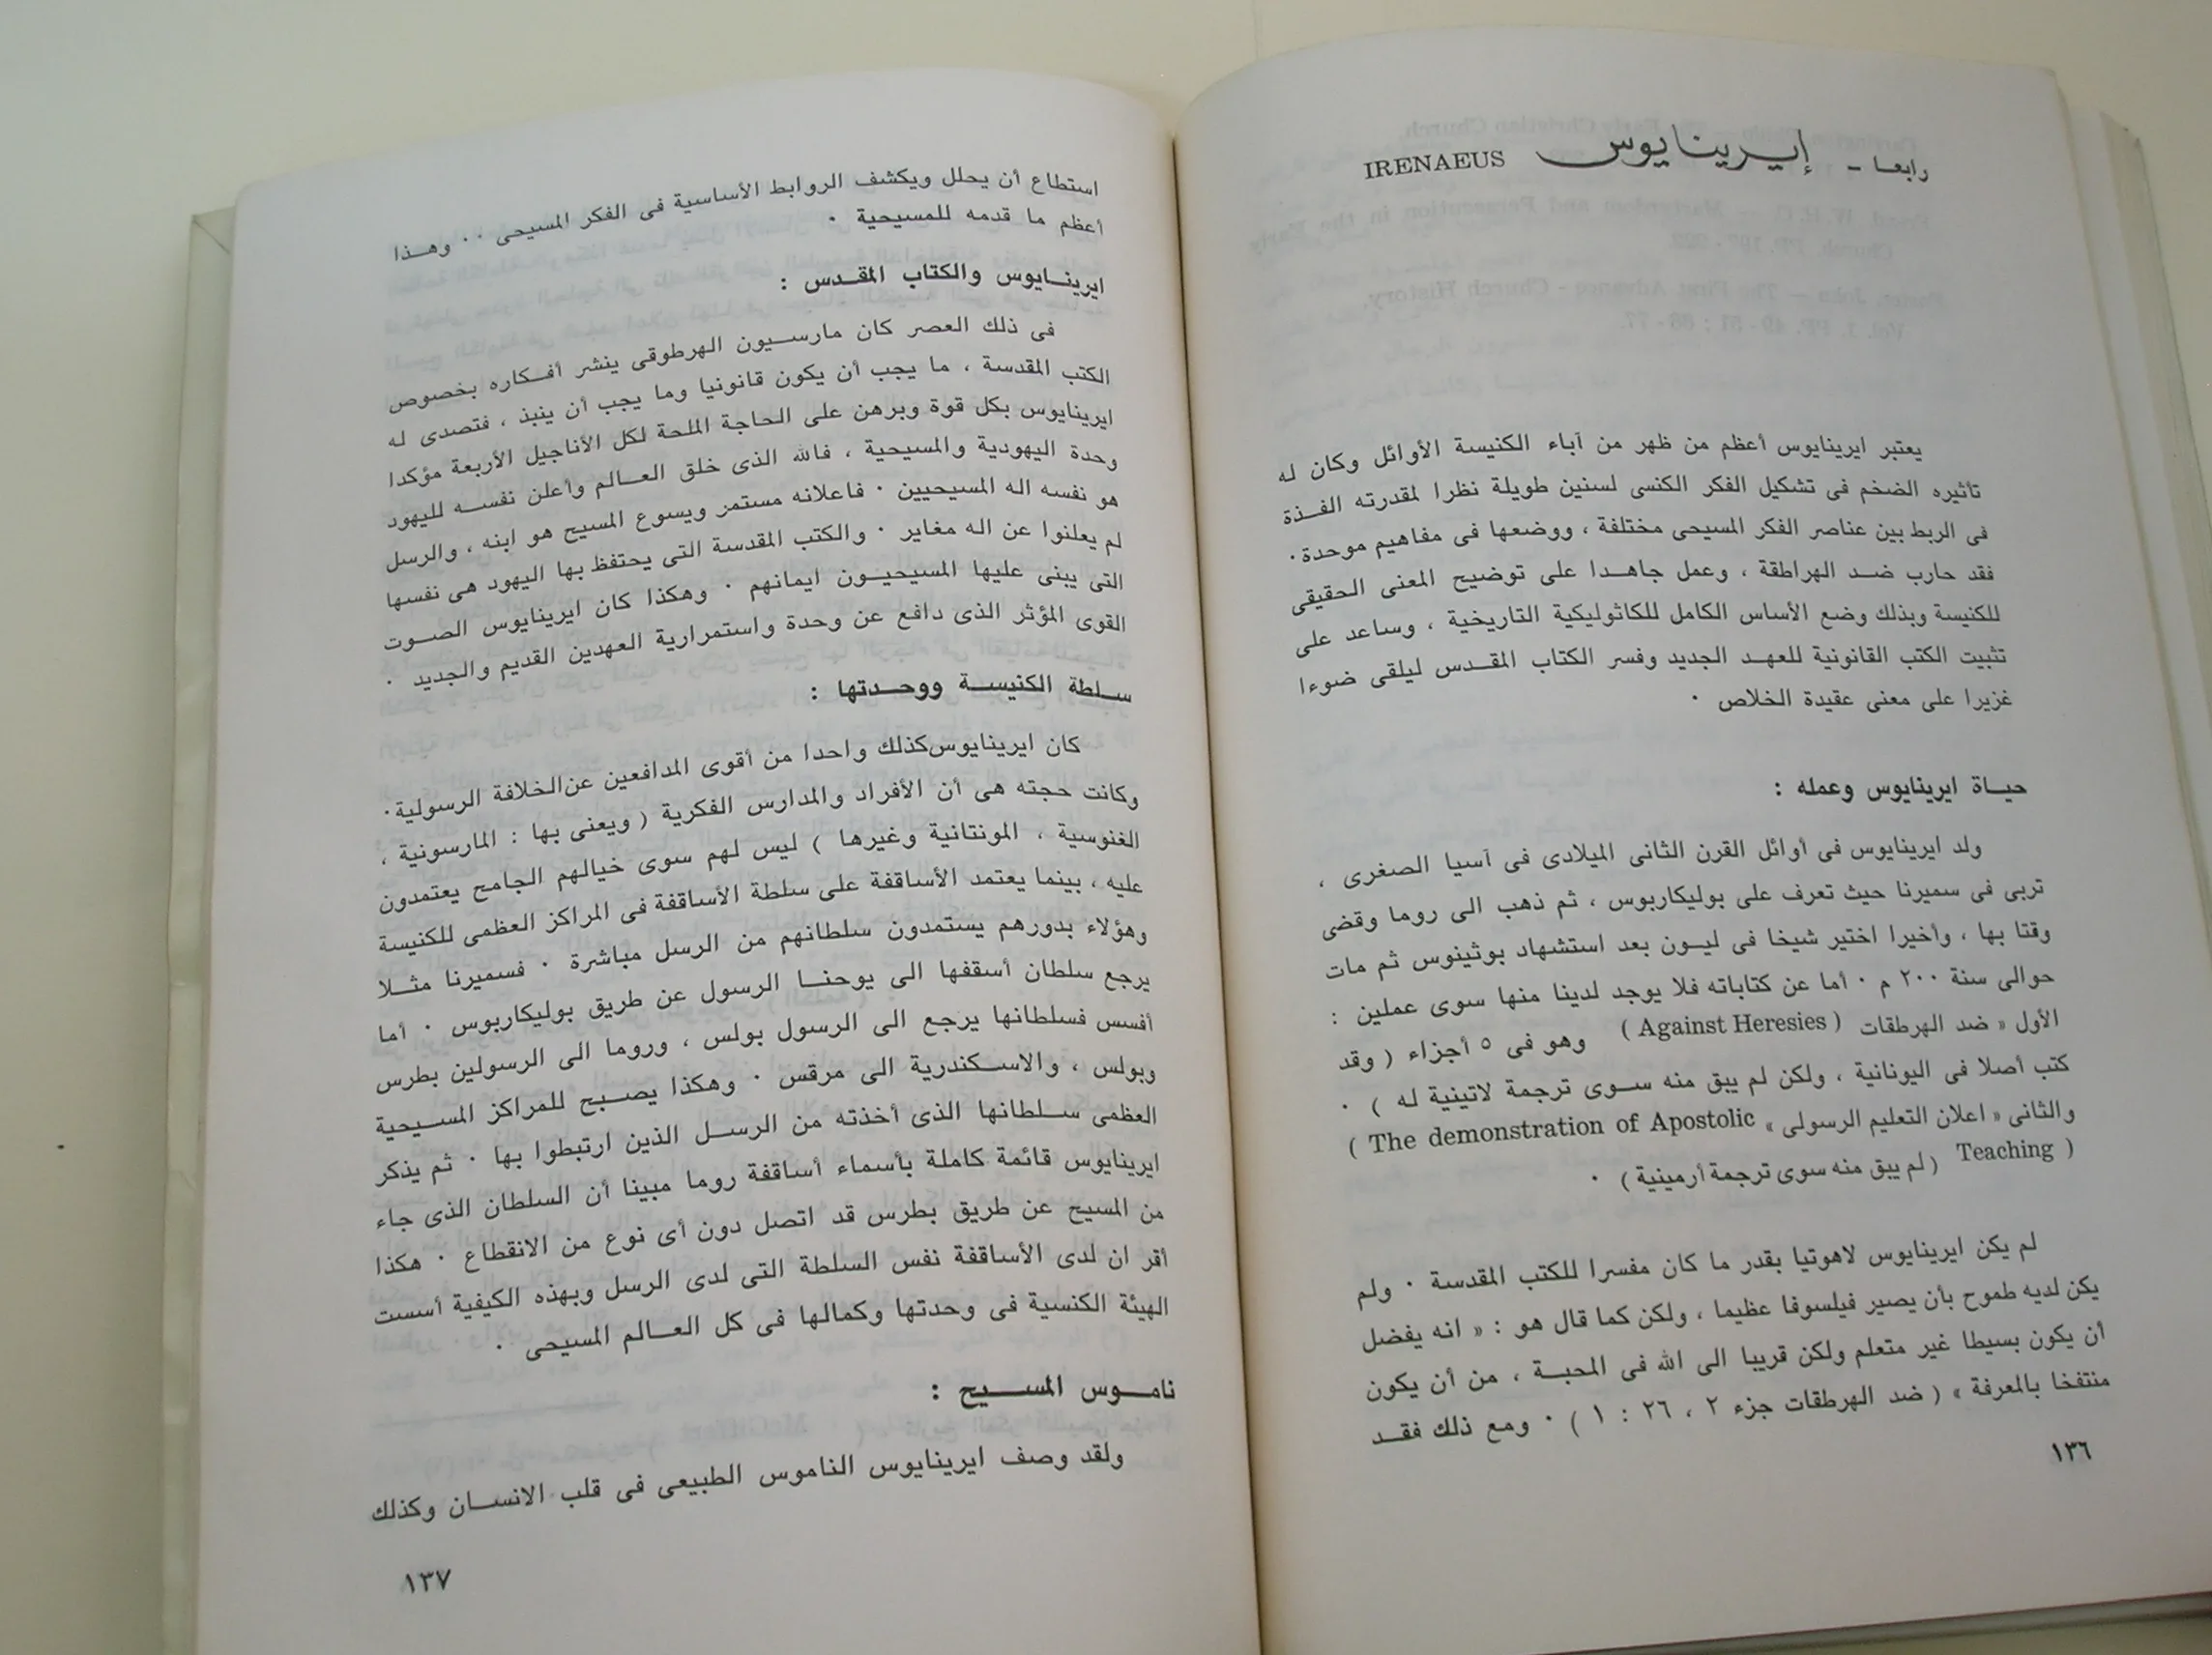 رابعا - إيرينايوس IRENAEUS
يعتبر ايرينايوس أعظم من ظهر من آباء الكنيسة الأوائل وكان له
تأثيره الضخم فى تشكيل الفكر الكنسى لسنين طويلة نظرا لمقدرته الفذة
فى الربط بين عناصر الفكر المسيحى مختلفة ، ووضعها فى مفاهيم موحدة ٠
فقد حارب ضد الهراطقة ، وعمل جاهدا على توضيح المعنى الحقيقى
للكنيسة وبذلك وضع الأساس الكامل للكاثوليكية التاريخية ، وساعد على
تثبيت الكتب القانونية للعهد الجديد وفسر الكتاب المقدس ليلقى ضوءا
غزيرا على معنى عقيدة الخلاص ٠
حياة ايرينايوس وعمله :
ولد ايرينايوس فى أوائل القرن الثانى الميلادى فى آسيا الصغرى ،
تربى فى سميرنا حيث تعرف على بوليكاربوس ، ثم ذهب الى روما وقضى
وقتا بها ، وأخيرا اختير شيخا فى ليون بعد استشهاد بوثينوس ثم مات
حوالى سنة ٢٠٠ م ٠ أما عن كتاباته فلا يوجد لدينا منها سوى عملين :
الأول « ضد الهرطقات ( Against Heresies ) وهو فى ٥ أجزاء ( وقد
كتب أصلا فى اليونانية ، ولكن لم يبق منه سوى ترجمة لاتينية له ) ٠
والثانى « اعلان التعليم الرسولى » ( The demonstration of Apostolic
Teaching ) ( لم يبق منه سوى ترجمة أرمينية ) ٠
لم يكن ايرينايوس لاهوتيا بقدر ما كان مفسرا للكتب المقدسة ٠ ولم
يكن لديه طموح بأن يصير فيلسوفا عظيما ، ولكن كما قال هو : « انه يفضل
أن يكون بسيطا غير متعلم ولكن قريبا الى الله فى المحبة ، من أن يكون
منتفخا بالمعرفة » ( ضد الهرطقات جزء ٢ ، ٢٦ : ١ ) ٠ ومع ذلك فقد
١٣٦
استطاع أن يحلل ويكشف الروابط الأساسية فى الفكر المسيحى ٠٠ وهذا
أعظم ما قدمه للمسيحية ٠
ايرينايوس والكتاب المقدس :
فى ذلك العصر كان مارسيون الهرطوقى ينشر أفكاره بخصوص
الكتب المقدسة ، ما يجب أن يكون قانونيا وما يجب أن ينبذ ، فتصدى له
ايرينايوس بكل قوة وبرهن على الحاجة الملحة لكل الأناجيل الأربعة مؤكدا
وحدة اليهودية والمسيحية ، فالله الذى خلق العالم وأعلن نفسه لليهود
هو نفسه اله المسيحيين ٠ فاعلانه مستمر ويسوع المسيح هو ابنه ، والرسل
لم يعلنوا عن اله مغاير ٠ والكتب المقدسة التى يحتفظ بها اليهود هى نفسها
التى يبنى عليها المسيحيون ايمانهم ٠ وهكذا كان ايرينايوس الصوت
القوى المؤثر الذى دافع عن وحدة واستمرارية العهدين القديم والجديد ٠
سلطة الكنيسة ووحدتها :
كان ايرينايوس كذلك واحدا من أقوى المدافعين عن الخلافة الرسولية ٠
وكانت حجته هى أن الأفراد والمدارس الفكرية ( ويعنى بها : المارسونية ،
الغنوسية ، المونتانية وغيرها ) ليس لهم سوى خيالهم الجامح يعتمدون
عليه ، بينما يعتمد الأساقفة على سلطة الأساقفة فى المراكز العظمى للكنيسة
وهؤلاء بدورهم يستمدون سلطانهم من الرسل مباشرة ٠ فسميرنا مثلا
يرجع سلطان أسقفها الى يوحنا الرسول عن طريق بوليكاربوس ٠ أما
أفسس فسلطانها يرجع الى الرسول بولس ، وروما الى الرسولين بطرس
وبولس ، والاسكندرية الى مرقس ٠ وهكذا يصبح للمراكز المسيحية
العظمى سلطانها الذى أخذته من الرسل الذين ارتبطوا بها ٠ ثم يذكر
ايرينايوس قائمة كاملة بأسماء أساقفة روما مبينا أن السلطان الذى جاء
من المسيح عن طريق بطرس قد اتصل دون أى نوع من الانقطاع ٠ هكذا
أقر ان لدى الأساقفة نفس السلطة التى لدى الرسل وبهذه الكيفية أسست
الهيئة الكنسية فى وحدتها وكمالها فى كل العالم المسيحى ٠
ناموس المسيح :
ولقد وصف ايرينايوس الناموس الطبيعى فى قلب الانسان وكذلك
١٣٧